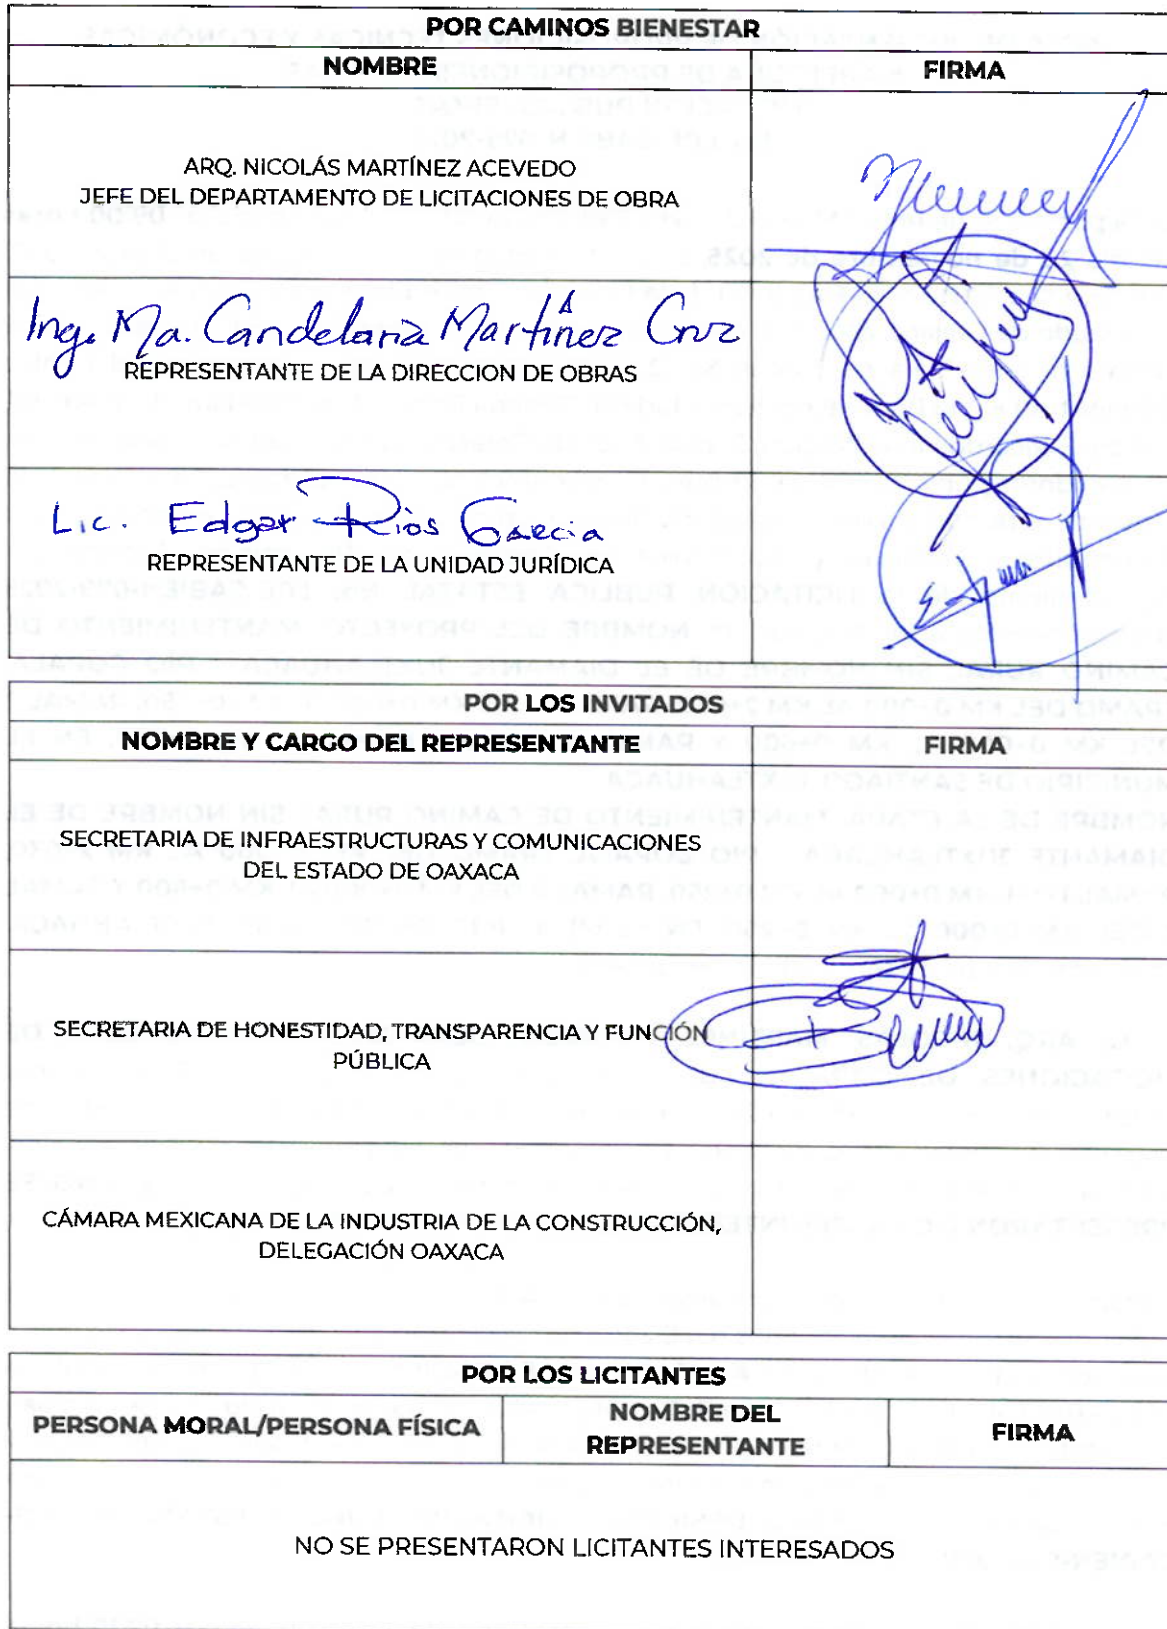 POR CAMINOS BIENESTAR
NOMBRE
FIRMA
ARQ. NICOLÁS MARTÍNEZ ACEVEDO
JEFE DEL DEPARTAMENTO DE LICITACIONES DE OBRA
Ing. Ma. Candelaria Martínez Cruz
REPRESENTANTE DE LA DIRECCION DE OBRAS
Lic. Edgar Rios Garcia
REPRESENTANTE DE LA UNIDAD JURÍDICA
POR LOS INVITADOS
NOMBRE Y CARGO DEL REPRESENTANTE
FIRMA
SECRETARIA DE INFRAESTRUCTURAS Y COMUNICACIONES
DEL ESTADO DE OAXACA
SECRETARIA DE HONESTIDAD, TRANSPARENCIA Y FUNCIÓN
PÚBLICA
CÁMARA MEXICANA DE LA INDUSTRIA DE LA CONSTRUCCIÓN,
DELEGACIÓN OAXACA
POR LOS LICITANTES
PERSONA MORAL/PERSONA FÍSICA
NOMBRE DEL
REPRESENTANTE
FIRMA
NO SE PRESENTARON LICITANTES INTERESADOS